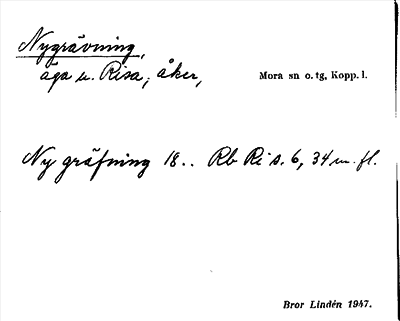 Nygrävning,
äga u. Risa, åker,
Mora sn o. tg, Kopp. l.
Ny gräfning 18.. Rb Ri s. 6, 34 m. fl.
Bror Lindén 1947.